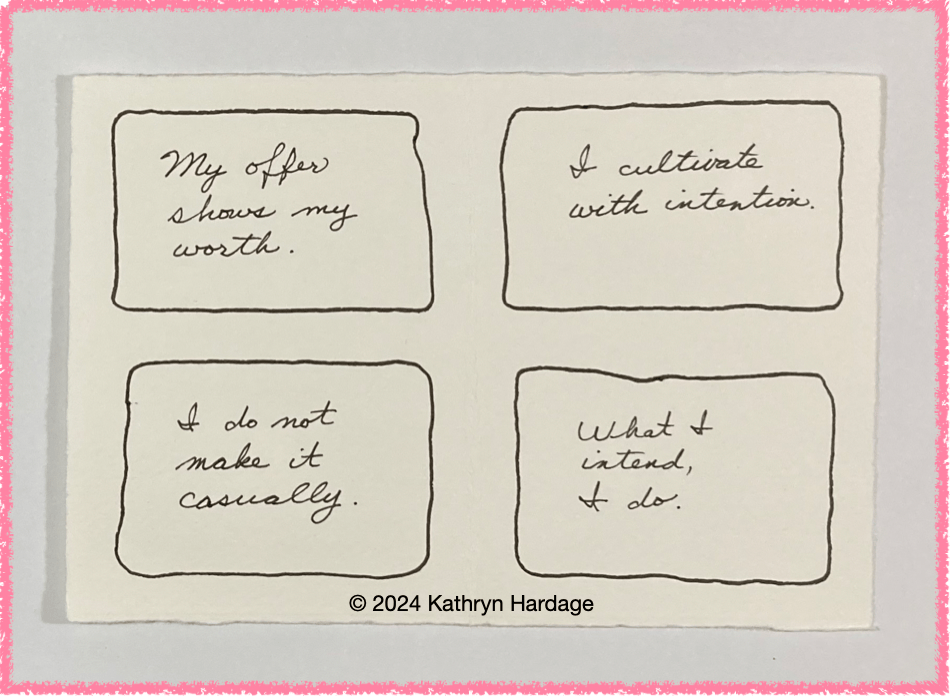 My offer
shows my
worth.
I cultivate
with intention.
I do not
make it
casually.
What I
intend,
I do.
© 2024 Kathryn Hardage